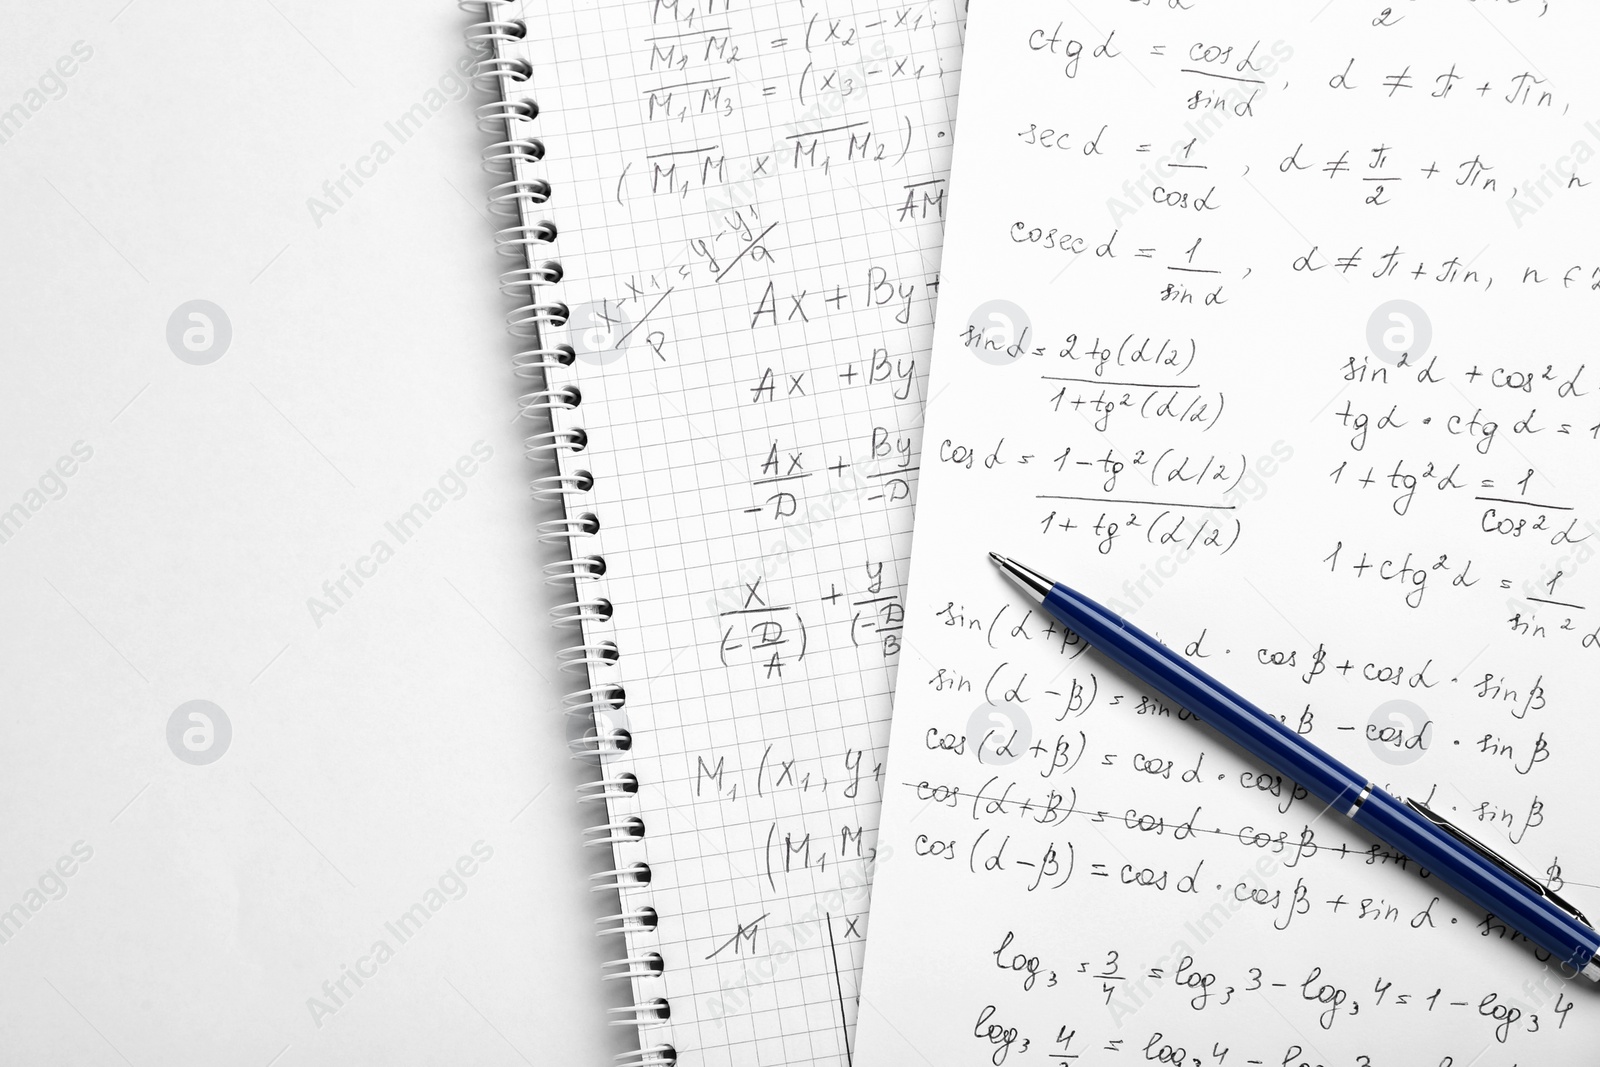 M₁M
M₁M₂ = (x₂-x₁;
M₁M₃ = (x₃-x₁;
(M₁M x M₁M₂) ·
AM
x-x₁/p = y-y₁/a
Ax + By +
Ax + By
Ax/-D + By/-D
x/(-D/A) + y/(-D/B
M₁(x₁, y₁
(M₁M
M
x
2
ctgα = cosα/sinα, α ≠ π + πn,
secα = 1/cosα, α ≠ π/2 + πn, n
cosecα = 1/sinα, α ≠ π + πn, n ∈
sinα = 2tg(α/2)/1+tg²(α/2)
cosα = 1-tg²(α/2)/1+tg²(α/2)
sin²α + cos²α
tgα · ctgα = 1
1 + tg²α = 1/cos²α
1 + ctg²α = 1/sin²α
sin(α+β α · cosβ + cosα · sinβ
sin(α-β) = sinα cosβ - cosα · sinβ
cos(α+β) = cosα · cosβ sinα · sinβ
cos(α+β) = cosα · cosβ + sin β
cos(α-β) = cosα · cosβ + sinα · sin
log₃ = 3/4 = log₃3 - log₃4 = 1 - log₃4
log₃ 4/3 = log₃4 - log 3